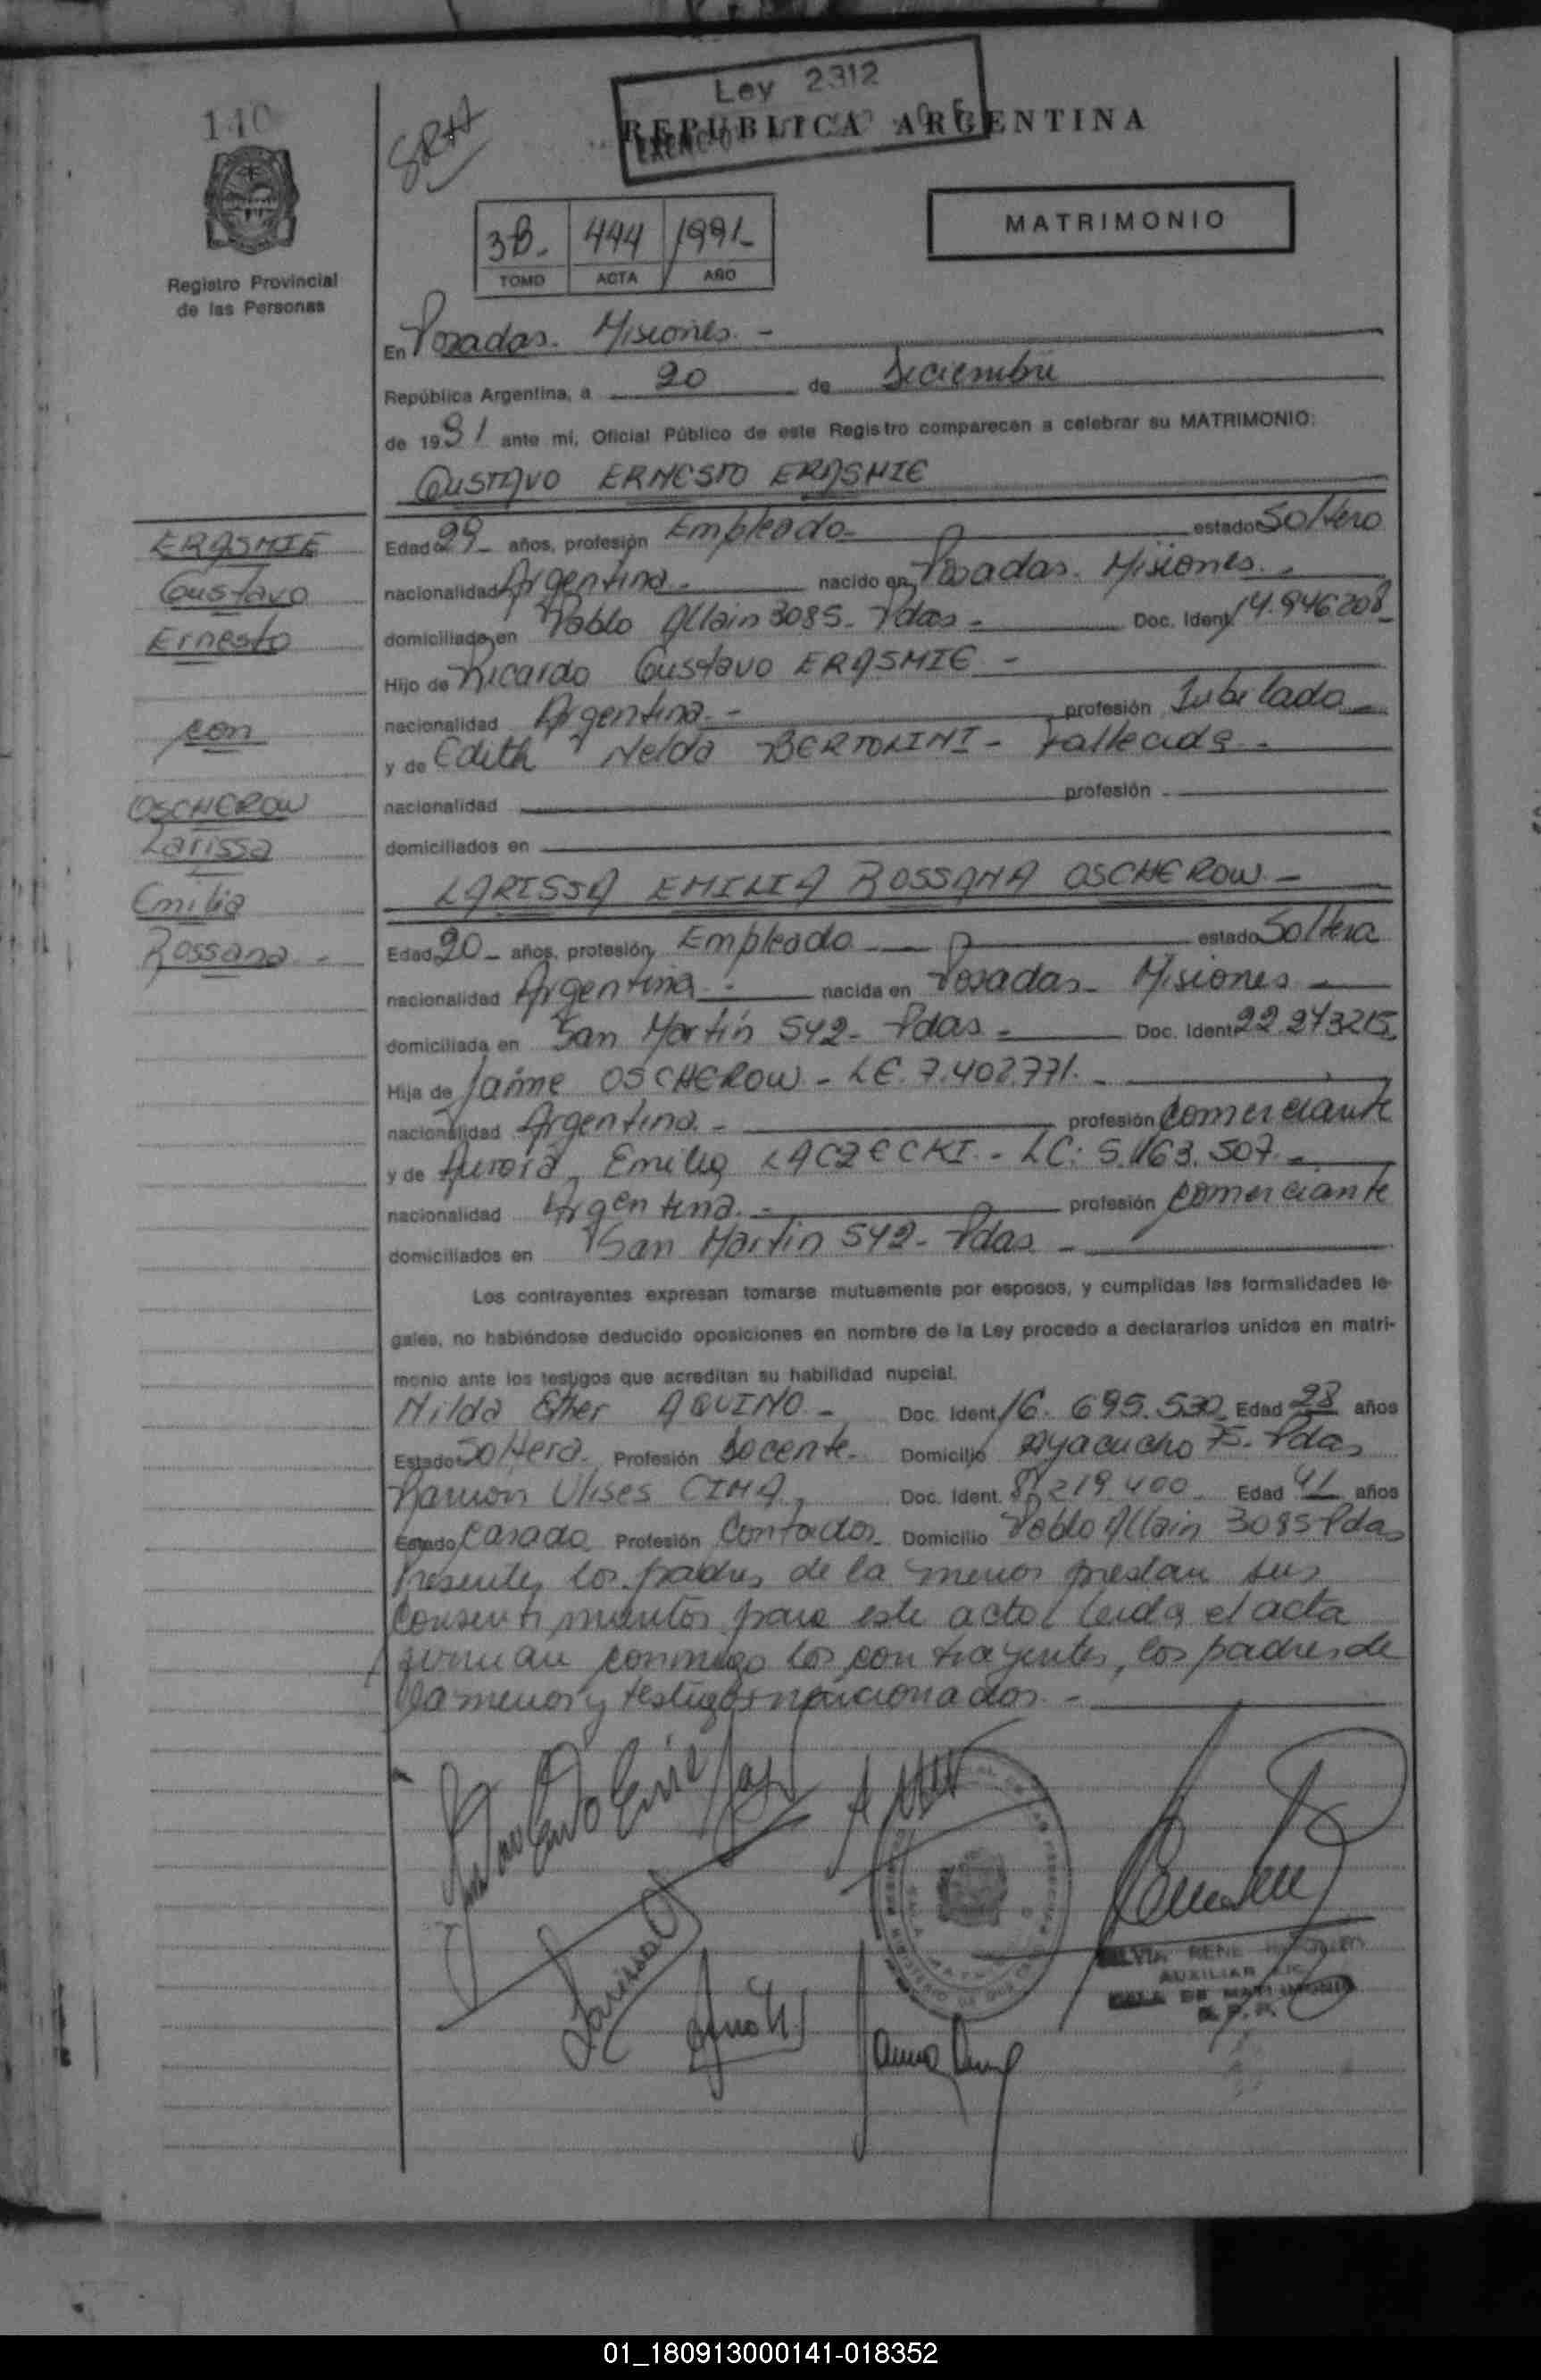 140
Registro Provincial
de las Personas
Ley 2312
REPUBLICA ARGENTINA
MATRIMONIO
3B.- 444 1991-
TOMO ACTA AÑO
En Posadas. Misiones. -
República Argentina, a 20 de Diciembre
de 1991 ante mí, Oficial Público de este Registro comparecen a celebrar su MATRIMONIO:
GUSTAVO ERNESTO ERASMIE
ERASMIE
Gustavo
Ernesto
con
OSCHEROW
Larissa
Emilia
Rossana. -
Edad 29- años, profesión Empleado- estado Soltero
nacionalidad Argentina. - nacido en Posadas. Misiones. -
domiciliado en Pablo Allain 3085- Pdas - Doc. Ident. 14.946.208-
Hijo de Ricardo Gustavo ERASMIE -
nacionalidad Argentina. - profesión Jubilado -
y de Edith Nelda BERTOLINI - Fallecida -
nacionalidad profesión
domiciliados en
LARISSA EMILIA ROSSANA OSCHEROW. -
Edad 20- años, profesión Empleado estado Soltera
nacionalidad Argentina - nacida en Posadas- Misiones -
domiciliada en San Martín 542- Pdas - Doc. Ident. 22.243215.
Hija de Jaime OSCHEROW - LE. 7.402.771. -
nacionalidad Argentina. - profesión Comerciante
y de Aurora Emilia LACZECKI. - LC: 5.163.507. -
nacionalidad Argentina. - profesión Comerciante
domiciliados en San Martin 542- Pdas -
Los contrayentes expresan tomarse mutuamente por esposos, y cumplidas las formalidades le-
gales, no habiéndose deducido oposiciones en nombre de la Ley procedo a declararlos unidos en matri-
monio ante los testigos que acreditan su habilidad nupcial.
Nilda Ether AQUINO - Doc. Ident. 16. 695.530. Edad 28 años
Estado Soltera. Profesión Docente. Domicilio Ayacucho 75. Pdas
Ramon Ulises CIMA, Doc. Ident. 8.219.400. Edad 41 años
Estado Casado Profesión Contador. Domicilio Pablo Allain 3085 Pdas
Presentes los padres de la menor prestan sus
consentimientos para este acto. Leida el acta
firman conmigo los contrayentes, los padres de
la menor y testigos mencionados -
AUXILIAR
SALA DE MATRIMONIO
R. P. P.
01_180913000141-018352